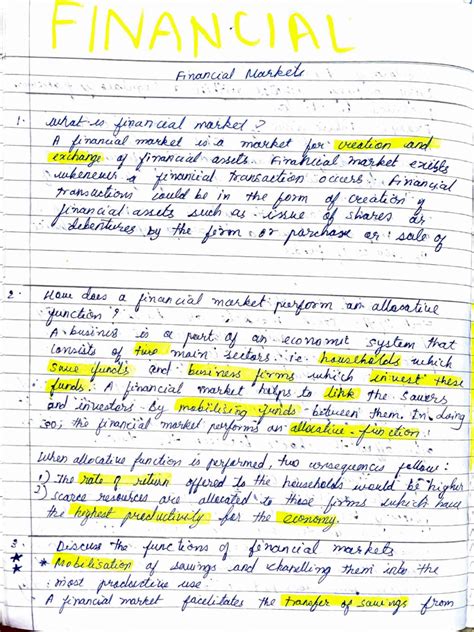 FINANCIAL
Financial Markets
1. What is financial market?
A financial market is a market for creation and
exchange of financial assets. Financial market exists
whenever a financial transaction occurs. Financial
transactions could be in the form of creation of
financial assets such as issue of shares or
debentures by the firm or purchase or sale of
2. How does a financial market perform an allocative
function?
A business is a part of an economic system that
consists of two main sectors i.e. households which
save funds and business firms which invest these
funds. A financial market helps to link the savers
and investors by mobilizing funds between them. In doing
so, the financial market performs an allocative function.
When allocative function is performed, two consequences follow:
1) The rate of return offered to the households would be higher
2) scarce resources are allocated to those firms which have
the highest productivity for the economy.
3. Discuss the functions of financial markets
* Mobilisation of savings and chanelling them into the
most productive use:
A financial market facilitates the transfer of savings from